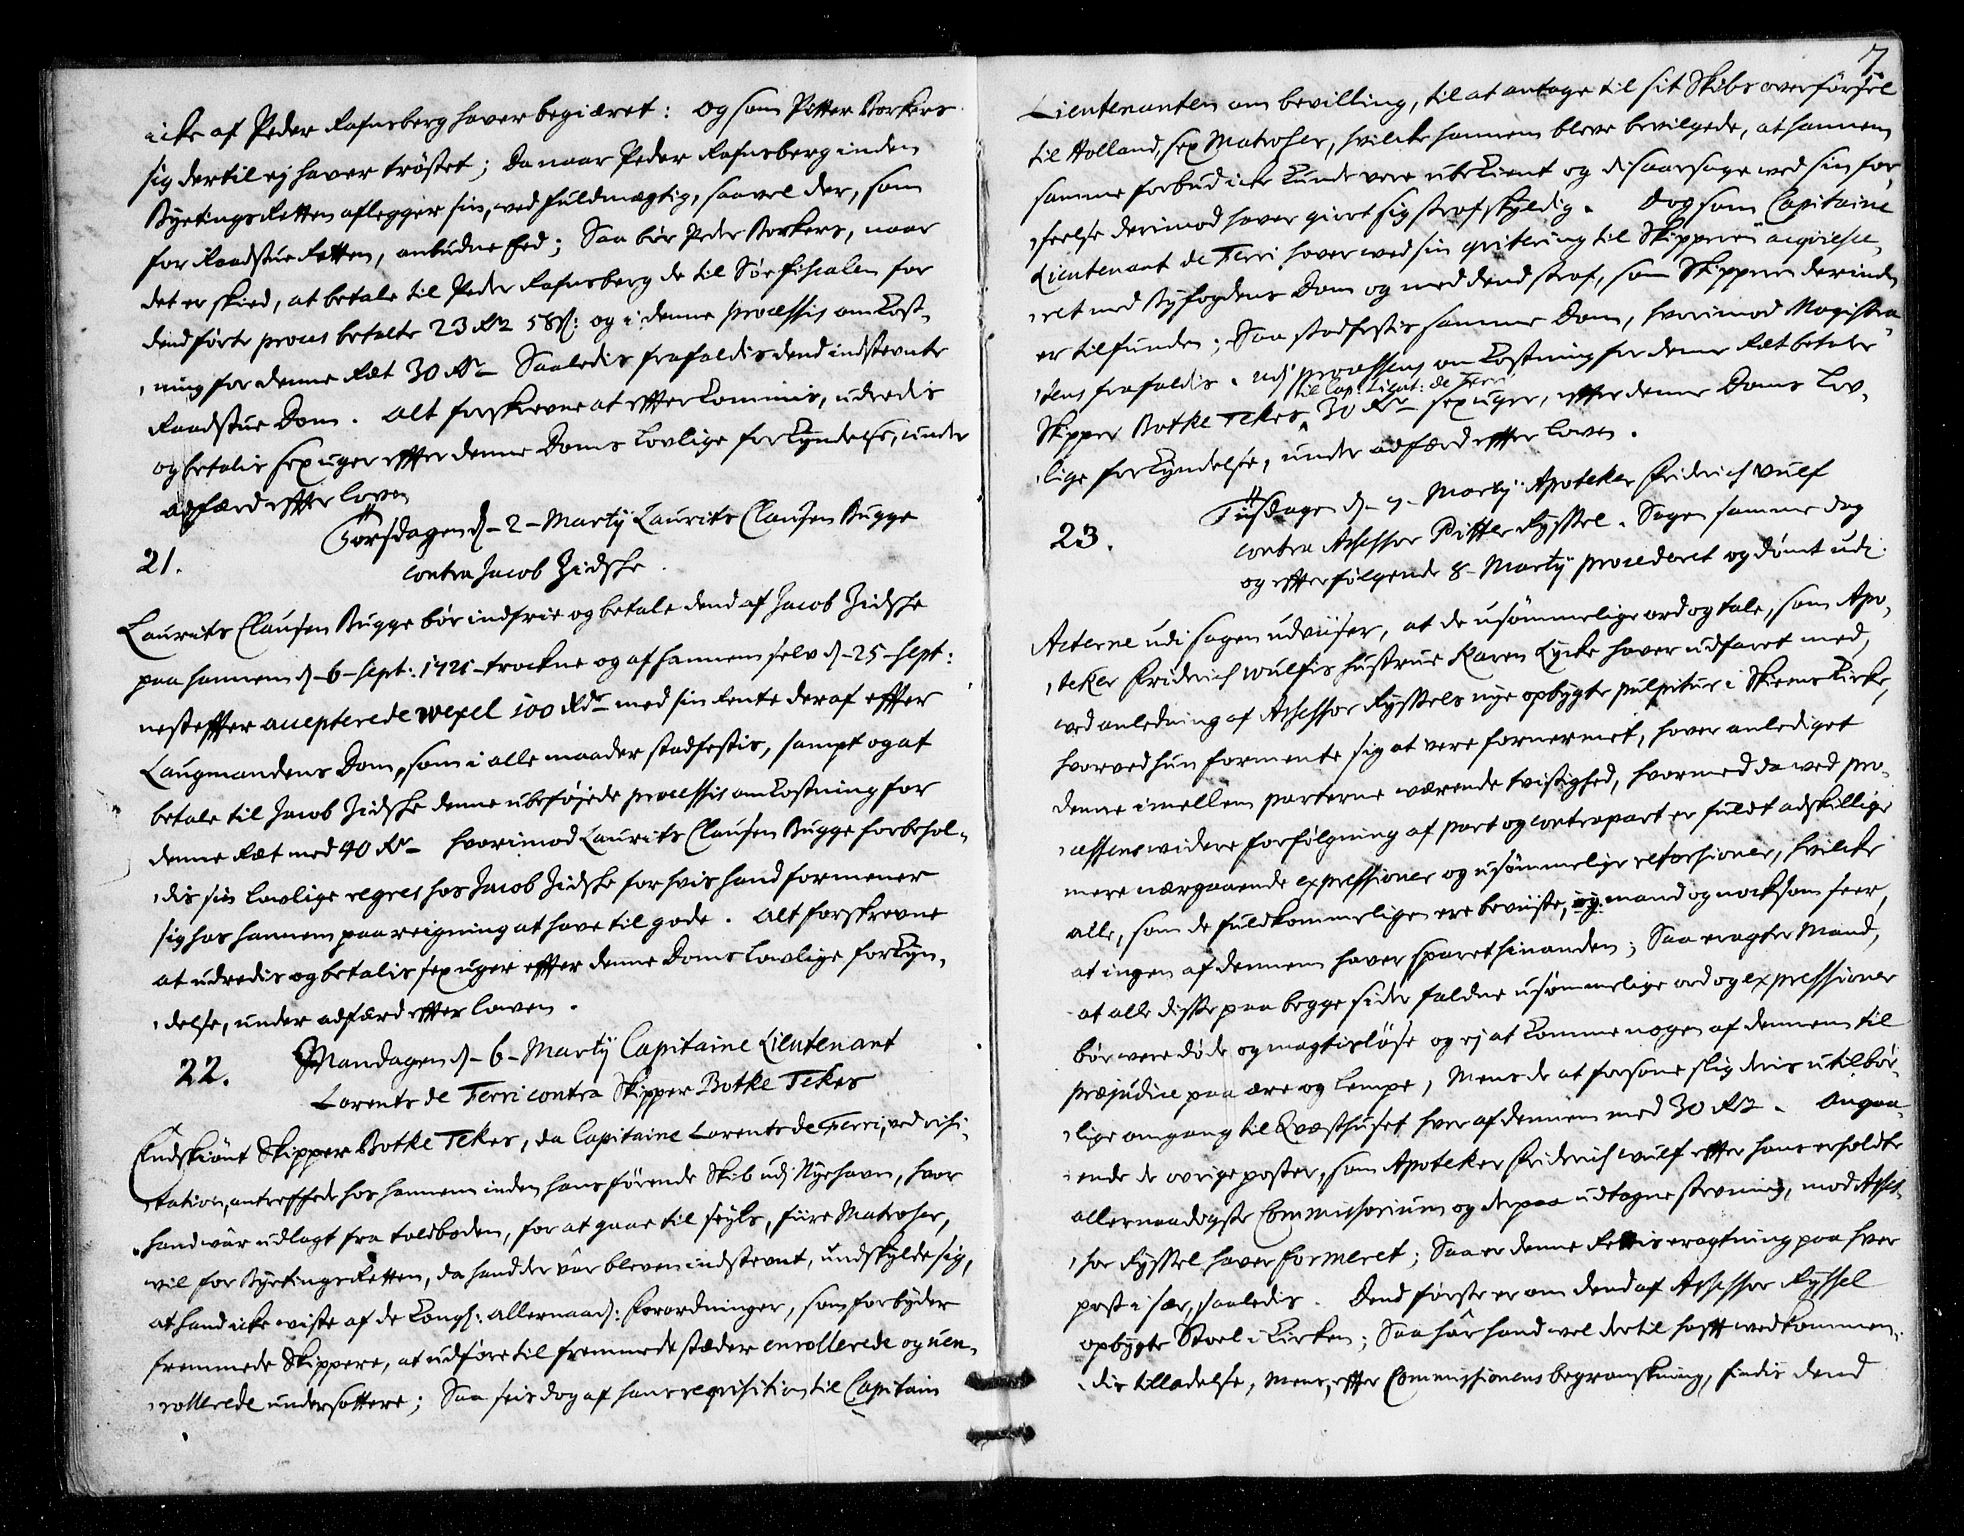 icke af Peder Rafnsberg haver begiæret: og som Pitter Borkers
sig dertil ej haver tröstet; Da naar Peder Rafnsberg inden
Byetings Retten aflegger sin, ved fuldmægtig, saavel der, som
for Raadstue Retten, anbudne Eed; Saa bör Peder Borkers, naar
det er skied, at betale til Peder Rafnsberg de til Söe Fiscalen for
dend förte proces betalte 23 Rdr 58 s: og i denne processis omkost-
ning for denne Ræt 30 Rdr Saaledis frafaldis dend indstevnte
Raadstue Dom. Alt forskrevne at efterkommis, udredis
og betalis sex uger effter denne Doms lovlige forkyndelse, under
adfærd effter loven
21.
Torsdagen d. 2 Martij Laurits Clausen Bugge
contra Jacob Zidsche.
Laurits Clausen Bugge bör indfrie og betale dend af Jacob Zidsche
paa hannem d. 6 sept: 1721 trockne og af hannem selv d. 25 sept:
nesteffter accepterede wexel 100 Rdr med sin Rente deraf effter
Laugmandens Dom, som i alle maader stadfestis, sampt og at
betale til Jacob Zidsche denne ubeföjede processis omkostning for
denne Ræt med 40 Rdr hvorimod Laurits Clausen Bugge forbehol-
dis sin lovlige regres hos Jacob Zidsche for hvis hand formener
sig hos hannem paa reigning at have til gode. Alt forskrevne
at udredis og betalis sex uger effter denne Doms lovlige forkyn-
delse, under adfærd effter loven.
22.
Mandagen d. 6 Martij Capitaine Lieutenant
Lorents de Ferri contra Skipper Botke Tekes
Endskiönt Skipper Botke Tekes, da Capitaine Lorents de Ferri, ved visi-
tation, antreffede hos hannem inden hans förende Skib udj Nyehavn, hvor
hand vår udlagt fra toldboden, for at gaae til seyls, fiire Matroser,
vil for Byetings Retten, da hand der vår bleven indstevnt, undskylde sig,
at hand icke viste af de Kongl: allernaad: Forordninger, som forbyder
fremmede Skippere, at udföre til fremmede stæder enrollerede og uen-
rollerede undersotter; Saa seis dog af hans reqvisition til Capitain
7.
Lieutenanten om bevilling, til at antage til sit Skibs overförsel
til Holland, sex Matroser, hvilcke hannem bleve bevilgede, at hannem
samme forbud icke kunde vere ubekient og disaarsage ved sin for-
seelse derimod haver giort sig straf skyldig. Dog som Capitaine
Lieutenant de Ferri haver ved sin qvitering til Skipperen acqviesce-
ret med Byfogdens Dom og med dend straf, som Skipperen derinden
er tilfunden; Saa stadfestis samme Dom, hvorimod Magistra-
tens frafaldis. udj processens omkostning for denne Ræt betaler
til Cap: Lieut: de Ferri
Skipper Botke Tekes 30 Rdr sex uger, effter denne Doms lov-
lige forkyndelse, under adfærd effter loven.
23.
Tiisdagen d. 7 Martij Apoteker Fridrich Wulf
contra Assessor Pitter Ryssel. Sagen samme dag
og effterfölgende 8 Martij procederet og dömt udi
Acterne udi sagen udviiser, at de usömmelige ord og tale, som Apo-
teker Fridrich Wulfis Hustrue Karen Lycke haver udfaret med,
ved anledning af Assessor Ryssels nye opbygte pulpitur i Skeens Kircke,
hvorved hun formente sig at vere fornermet, haver anlediget
denne imellem parterne værende tvistighed, hvormed da ved pro-
cessens widere forfölgning af part og contrapart er fuldt adskillige
mere nærgaaende expressioner og usömmelige retorsioner, hvilcke
alle, som de fuldkommeligen ere beviiste, og mand og nocksom seer,
at ingen af dennem haver sparet hinanden; Saa eragter Mand,
at alle disse paa begge sider faldne usömmelige ord og expressioner
bör were döde og magtislöse og ej at komme nogen af dennem til
præjudice paa ære og lempe, Mens de at forsone slig deris utilbör-
lige omgang til Qvæsthuset hver af dennem med 30 Rdr. Angaa-
ende de övrige poster, som Apoteker Fridrich Wulf effter hans erholdte
allernaadigste Commissorium og derpaa udtagne stevning, mod Asses-
sor Ryssel haver formeret; Saa er denne Rettis eragtning paa hver
post i sær, saaledis. Dend förste er om dend af Assessor Ryssel
opbygte Stoel i Kircken; Saa hår hand vel dertil hafft vedkommen-
dis tilladelse, Mens, effter Commissionens begranskning, findis dend